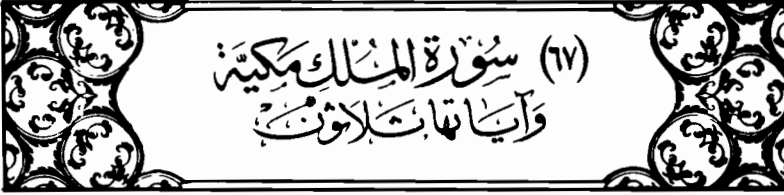 (٦٧) سُورَةُ المُلْكِ مَكِيَّة
وَآيَاتُهَا ثَلَاثُونْ